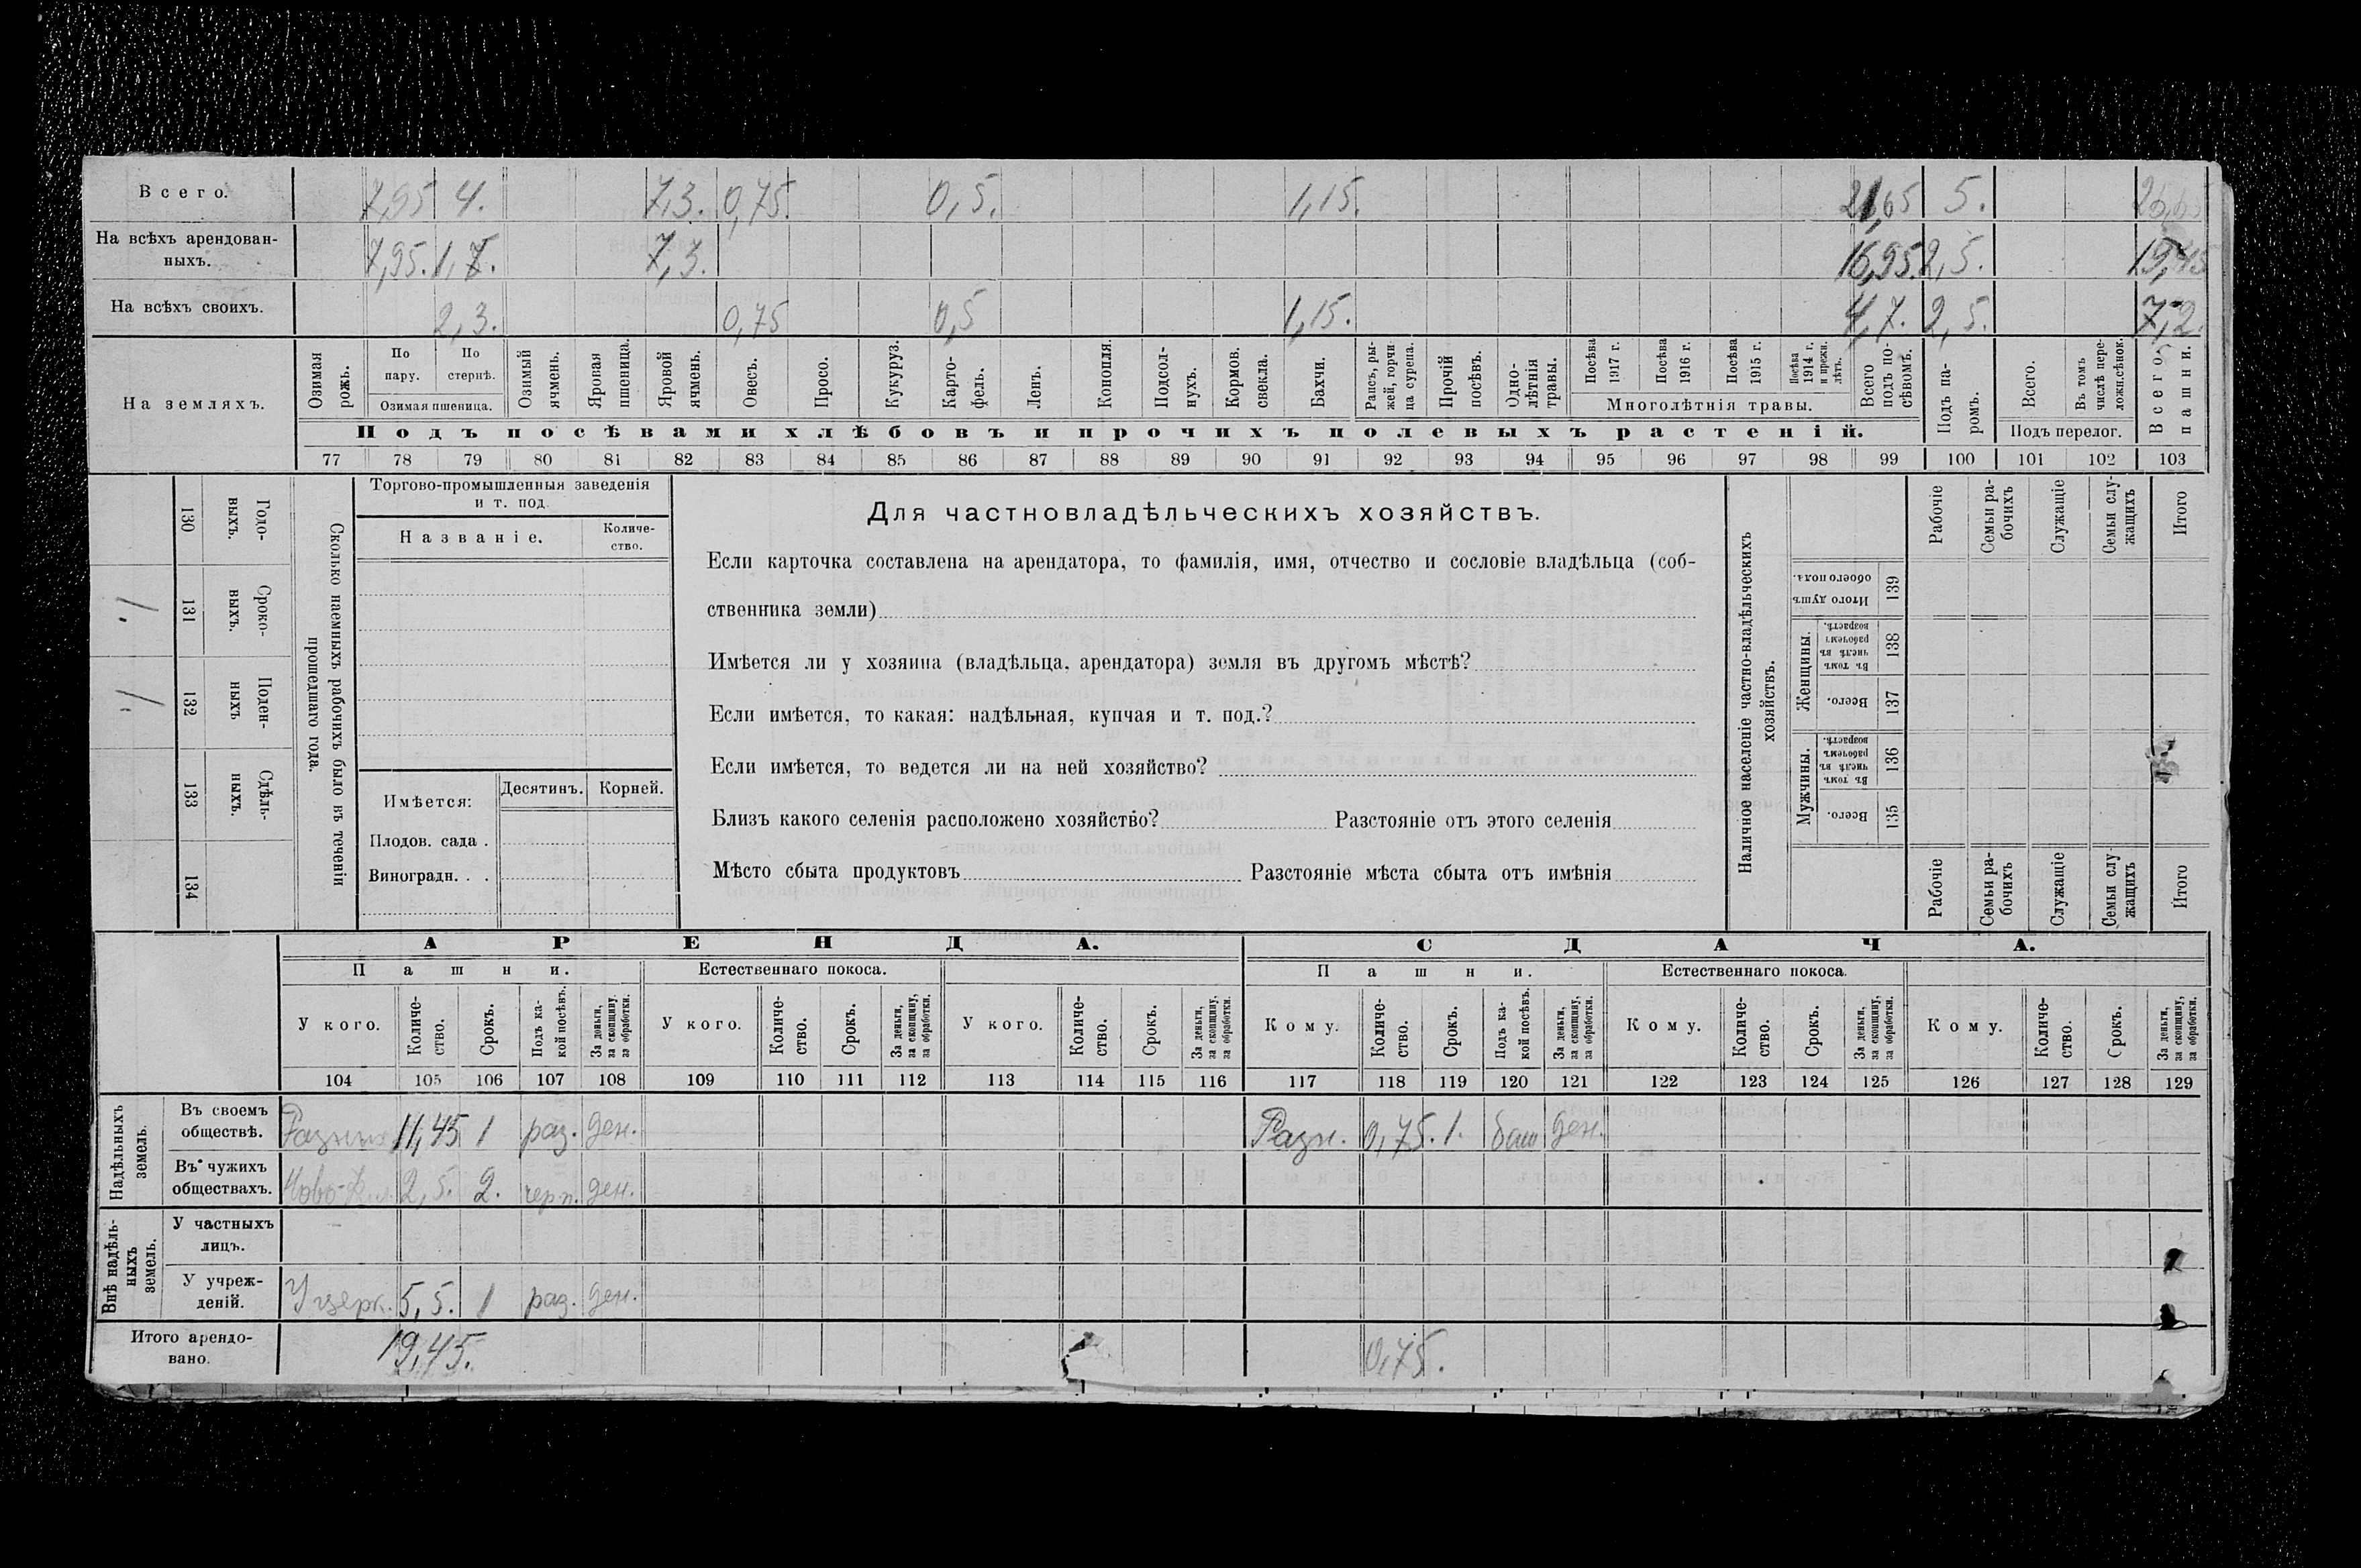 Всего. 7,95 4. 7,3. 0,75. 0,5. 1,15. 21,65 5. 26,65
На всѣхъ арендован-
ныхъ. 7,95. 1,7. 7,3. 16,95. 2,5. 19,45
На всѣхъ своихъ. 2,3. 0,75 0,5 1,15. 4,7. 2,5. 7,2.
На земляхъ.
Озимая рожь.
По пару.
По стернѣ.
Озимая пшеница.
Озимый ячмень.
Яровая пшеница.
Яровой ячмень.
Овесъ.
Просо.
Кукуруз.
Карто-
фель.
Ленъ.
Конопля.
Подсол-
нухъ.
Кормов. свекла.
Бахчи.
Рапсъ, ры-
жей, горчи
ца сурепа.
Прочій посѣвъ.
Одно-
лѣтнія
травы.
Посѣва 1917 г.
Посѣва 1916 г.
Посѣва 1915 г.
Посѣва 1914 г. и прежн. лѣтъ.
Многолѣтнія травы.
Всего подъ по-
сѣвомъ.
Подъ па-
ромъ.
Всего.
Въ томъ числѣ пере-
ложн.сѣнок.
Подъ перелог.
Всего пашни.
Подъ посѣвами хлѣбовъ и прочихъ полевыхъ растеній.
77 78 79 80 81 82 83 84 85 86 87 88 89 90 91 92 93 94 95 96 97 98 99 100 101 102 103
130 Годо-
ныхъ.
131 Сроко-
ныхъ.
132 Поден-
ныхъ
133 Сдѣль-
ныхъ.
134
Сколько наемныхъ рабочихъ было въ теченіи
прошедшаго года.
Торгово-промышленныя заведенія
и т. под.
Названіе.
Количе-
ство.
Имѣется: Десятинъ. Корней.
Плодов. сада .
Виноградн. . .
Для частновладѣльческихъ хозяйствъ.
Если карточка составлена на арендатора, то фамилія, имя, отчество и сословіе владѣльца (соб-
ственника земли)
Имѣется ли у хозяина (владѣльца, арендатора) земля въ другомъ мѣстѣ?
Если имѣется, то какая: надѣльная, купчая и т. под.?
Если имѣется, то ведется ли на ней хозяйство?
Близъ какого селенія расположено хозяйство? Разстояніе отъ этого селенія
Мѣсто сбыта продуктовъ Разстояніе мѣста сбыта отъ имѣнія
Наличное населеніе частно-владѣльческихъ
хозяйствъ.
Рабочіе
Семьи ра-
бочихъ
Служащіе
Семьи слу-
жащихъ
Итого
Итого душъ обоего пола. 139
Женщины.
Въ томъ числѣ въ рабочемъ возрастѣ. 138
Всего. 137
Мужчины.
Въ томъ числѣ въ рабочемъ возрастѣ. 136
Всего. 135
Рабочіе
Семьи ра-
бочихъ
Служащіе
Семьи слу
жащихъ
Итого
АРЕНДА. СДАЧА.
Пашни. Естественнаго покоса. Пашни. Естественнаго покоса.
У кого. Количе-
ство. Срокъ. Подъ ка-
кой посѣвъ. За деньги, за скопщину, за обработки.
У кого. Количе-
ство. Срокъ. За деньги, за скопщину, за обработки.
У кого. Количе-
ство. Срокъ. За деньги, за скопщину, за обработки.
Кому. Количе-
ство. Срокъ. Подъ ка-
кой посѣвъ. За деньги, за скопщину, за обработки.
Кому. Количе-
ство. Срокъ. За деньги, за скопщину, за обработки.
Кому. Количе-
ство. Срокъ. За деньги, за скопщину, за обработки.
104 105 106 107 108 109 110 111 112 113 114 115 116 117 118 119 120 121 122 123 124 125 126 127 128 129
Надѣльныхъ
земель.
Въ своемъ
обществѣ. Разных 11,45 1 раз. ден. Разн. 0,75. 1. баш ден.
Въ чужихъ
обществахъ. Ново- 2,5. 2. черп. ден.
Внѣ надѣль-
ныхъ
земель.
У частныхъ
лицъ.
У учреж-
деній. У церк. 5,5. 1 раз. ден.
Итого арендо-
вано. 19,45. 0,75.